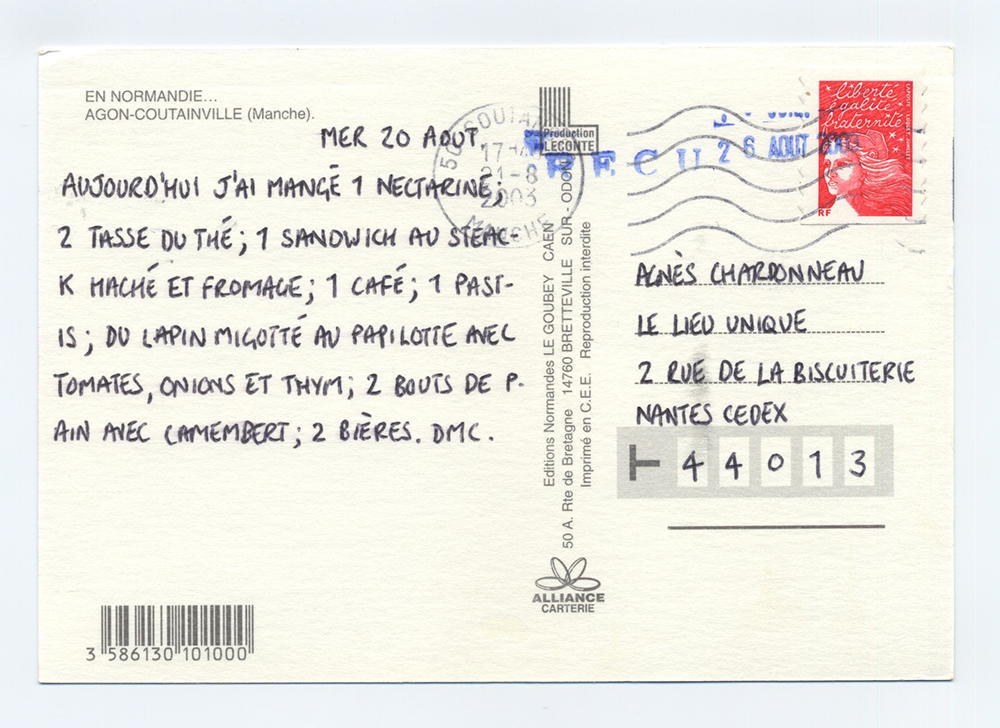 EN NORMANDIE...
AGON-COUTAINVILLE (Manche).
MER 20 AOUT.
AUJOURD'HUI J'AI MANGÉ 1 NECTARINE;
2 TASSE DU THÉ; 1 SANDWICH AU STEAC-
K HACHÉ ET FROMAGE; 1 CAFÉ; 1 PAST-
IS; DU LAPIN MIGOTTÉ AU PAPILOTTE AVEC
TOMATES, ONIONS ET THYM; 2 BOUTS DE P-
AIN AVEC CAMEMBERT; 2 BIÈRES. DMC.
3 586130 101000
Production
LECONTE
Editions Normandes LE GOUBEY CAEN
50 A. Rte de Bretagne 14760 BRETTEVILLE SUR - ODON
Imprimé en C.E.E. Reproduction interdite
ALLIANCE
CARTERIE
17H
21-8
2003
MANCHE
RECU
26 AOUT 2003
liberté
égalité
fraternité
RF
AGNÈS CHARDONNEAU
LE LIEU UNIQUE
2 RUE DE LA BISCUITERIE
NANTES CEDEX
T 44013